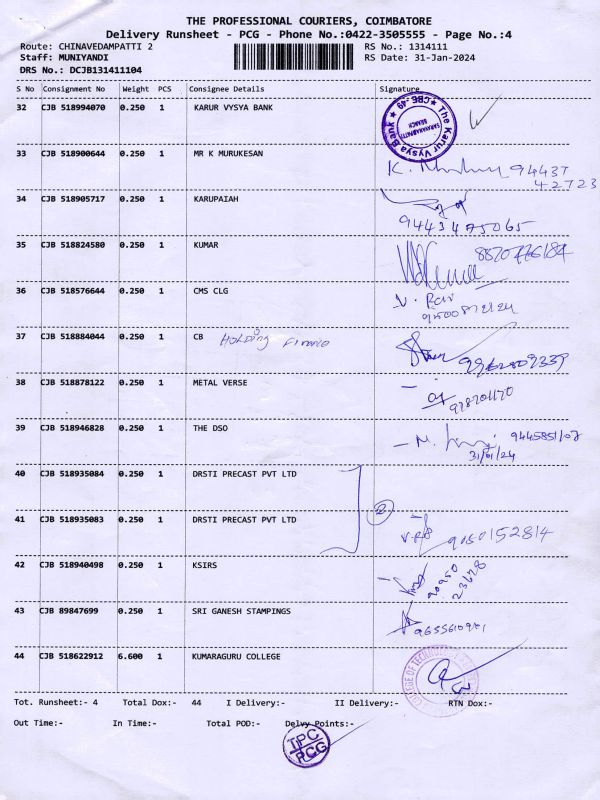 THE PROFESSIONAL COURIERS, COIMBATORE
Delivery Runsheet - PCG - Phone No.:0422-3505555 - Page No.:4
Route: CHINAVEDAMPATTI 2 RS No.: 1314111
Staff: MUNIYANDI RS Date: 31-Jan-2024
DRS No.: DCJB131411104
S No Consignment No Weight PCS Consignee Details Signature
32 CJB 518994070 0.250 1 KARUR VYSYA BANK
The Karur Vysya Bank
CBE-49
33 CJB 518900644 0.250 1 MR K MURUKESAN
94437
42723
34 CJB 518905717 0.250 1 KARUPAIAH
9443475065
35 CJB 518824580 0.250 1 KUMAR
36 CJB 518576644 0.250 1 CMS CLG
37 CJB 518884044 0.250 1 CB Holding Finance
38 CJB 518878122 0.250 1 METAL VERSE
39 CJB 518946828 0.250 1 THE DSO
31/01/24
40 CJB 518935084 0.250 1 DRSTI PRECAST PVT LTD
2
41 CJB 518935083 0.250 1 DRSTI PRECAST PVT LTD
42 CJB 518940498 0.250 1 KSIRS
43 CJB 89847699 0.250 1 SRI GANESH STAMPINGS
44 CJB 518622912 6.600 1 KUMARAGURU COLLEGE
Tot. Runsheet:- 4 Total Dox:- 44 I Delivery:- II Delivery:- RTN Dox:-
Out Time:- In Time:- Total POD:- Delvy Points:-
TPC
PCG